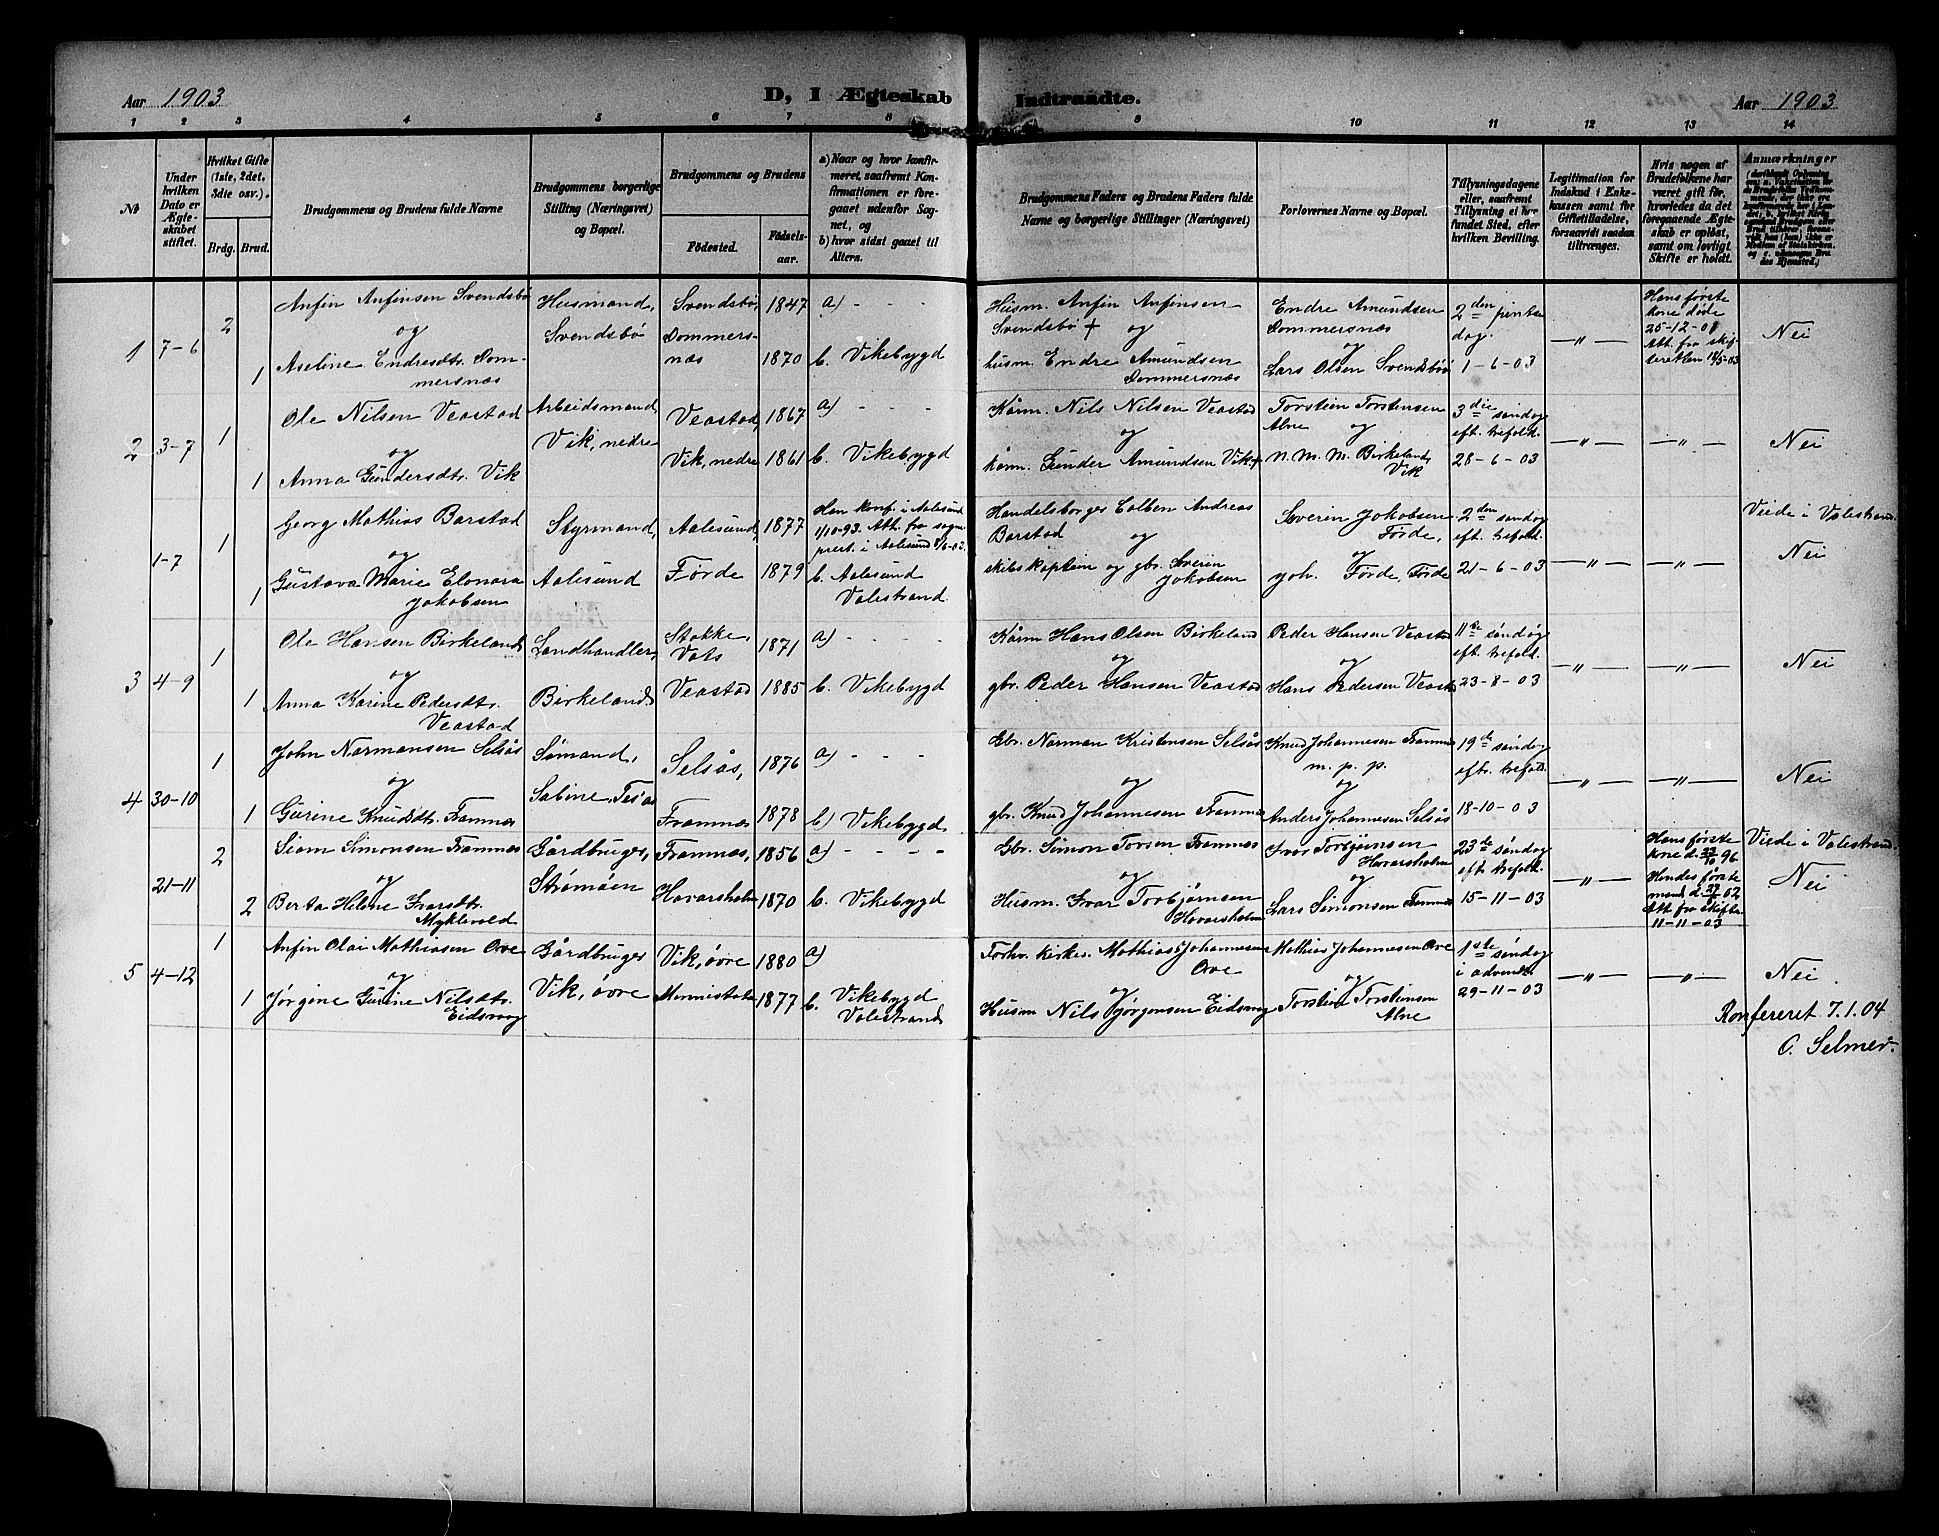 Aar 1903
D, I Ægteskab Indtraadte.
Aar 1903
1 2 3 4 5 6 7 8 9 10 11 12 13 14
No
Under hvilken Dato er Ægteskabet stiftet.
Hvilket Gifte (1ste, 2det, 3die osv.).
Brdg. Brud.
Brudgommens og Brudens fulde Navne
Brudgommens borgerlige Stilling (Næringsvei) og Bopæl.
Brudgommens og Brudens
Födested.
Födsels-aar.
a) Naar og hvor konfirmeret, saafremt Konfirmationen er foregaaet udenfor Sognet, og
b) hvor sidst gaaet til Alters.
Brudgommens Faders og Brudens Faders fulde Navne og borgerlige Stillinger (Næringsvei)
Forlovernes Navne og Bopæl.
Tillysningsdagene eller, saafremt Tillysning ei har fundet Sted, efter hvilken Bevilling.
Legitimation for Indskud i Enkekassen samt for Giftetilladelse, forsaavidt saadan tiltrænges.
Hvis nogen af Brudefolkene har været gift för, hvorledes da det foregaaende Ægteskab er oplöst, samt om lovligt Skifte er holdt.
Anmærkninger
1 7-6 2 Anfin Anfinsen Svendsbö
og
1 Aseline Endresdtr. Dommersnæs
Husmand, Svendsbö
Svendsbö, 1847
Dommersnæs 1870
a) - - -
b. Vikebygd
Husm. Anfin Anfinsen Svendsbö + og
husm. Endre Amundsen Dommersnæs
Endre Amundsen Dommersnæs
og
Lars Olsen Svendsbö
2den pintsedag.
1-6-03
—"—
Hans første kone døde 25-12-01
Att. fra skifteretten 18/5-03
Nei
2 3-7 1 Ole Nilsen Veastad
og
1 Anna Gundersdtr. Vik
Arbeidsmand, Vik, nedre
Veastad, 1867
Vik, nedre 1861
a) - - -
b. Vikebygd
Kårm. Nils Nilsen Veastad
og
kårm. Gunder Amundsen Vik +
Torstein Torstensen Alne og
N. M. M. Birkeland, Vik
3die söndag eft. trefold.
28-6-03
—"— —"— Nei
1-7 1 Georg Mathias Barstad
og
1 Gustava Marie Elonara Jakobsen
Styrmand, Aalesund
Aalesund, 1877
Førde 1879
Han konf. i Aalesund 1/10-93. Att. fra sogneprest. i Aalesund
b. Aalesund
Valestrand.
Handelsborger Colben Andreas Barstad og
skibskaptein og gbr. Sverin Jakobsen
Severin Jakobsen Førde,
og
Joh. Førde, Førde
2den søndag eft. trefold.
21-6-03
—"— —"—
Viede i Valestrand.
Nei
3 4-9 1 Ole Hansen Birkeland
og
1 Anna Karine Pedersdtr. Veastad
Landhandler, Birkeland
Stokke, Vats 1871
Veastad 1885
a) - - -
b. Vikebygd
Kårm Hans Olsen Birkeland
og
gbr. Peder Hansen Veastad
Peder Hansen Veastad
og
Hans Pedersen Veastad
11te söndag eft. trefold.
23-8-03
—"— —"— Nei
4 30-10 1 John Narmansen Selsås
og
1 Gurine Knudsdtr. Framnæs
Sömand,
Selsås, 1876
Framnæs 1878
a) - - -
b) Vikebygd
Gbr. Narman Kristensen Selsås
og
gbr. Knud Johannesen Framnæs
Knud Johannesen Framnæs
m. p. p.
og
Anders Johannesen Selsås
19de söndag eftr. trefold.
18-10-03
—"— —"— Nei
21-11 2 Siom Simonsen Framnæs
og
2 Berta Helene Ivarsdtr. Myklevold
Gårdbruger, Strømøen
Framnæs, 1856
Havarsholm 1870
a) - - - -
b. Vikebygd
Gbr. Simon Torsen Framnæs
og
Husm. Ivar Torbjørnsen Havarsholm
Ivar Torbjørnsen Havarsholm
og
Lars Simonsen Framnæs
23de söndag eft trefold.
15-11-03
—"—
Hans første kone d. 96
Hendes første mand d. 02
Att. fra skifter. 11-11-03
Viede i Valestrand.
Nei
5 4-12 1 Anfin Olai Mathiasen Orve
og
1 Jørgine Gurine Nilsdtr. Eidsvag
Gårdbruger Vik, övre
Vik, övre 1880
1877
a)
b. Vikebygd
Valestrand
Forhv. kirkes. Mathias Johannesen Orve
og
Husm Nils Jörgensen Eidsvag
Mathias Johannesen Orve
og
Torstein Torstensen Alne
1ste söndag i advent
29-11-03
—"— —"— Nei
Konfereret 7.1.04
O. Selmer.